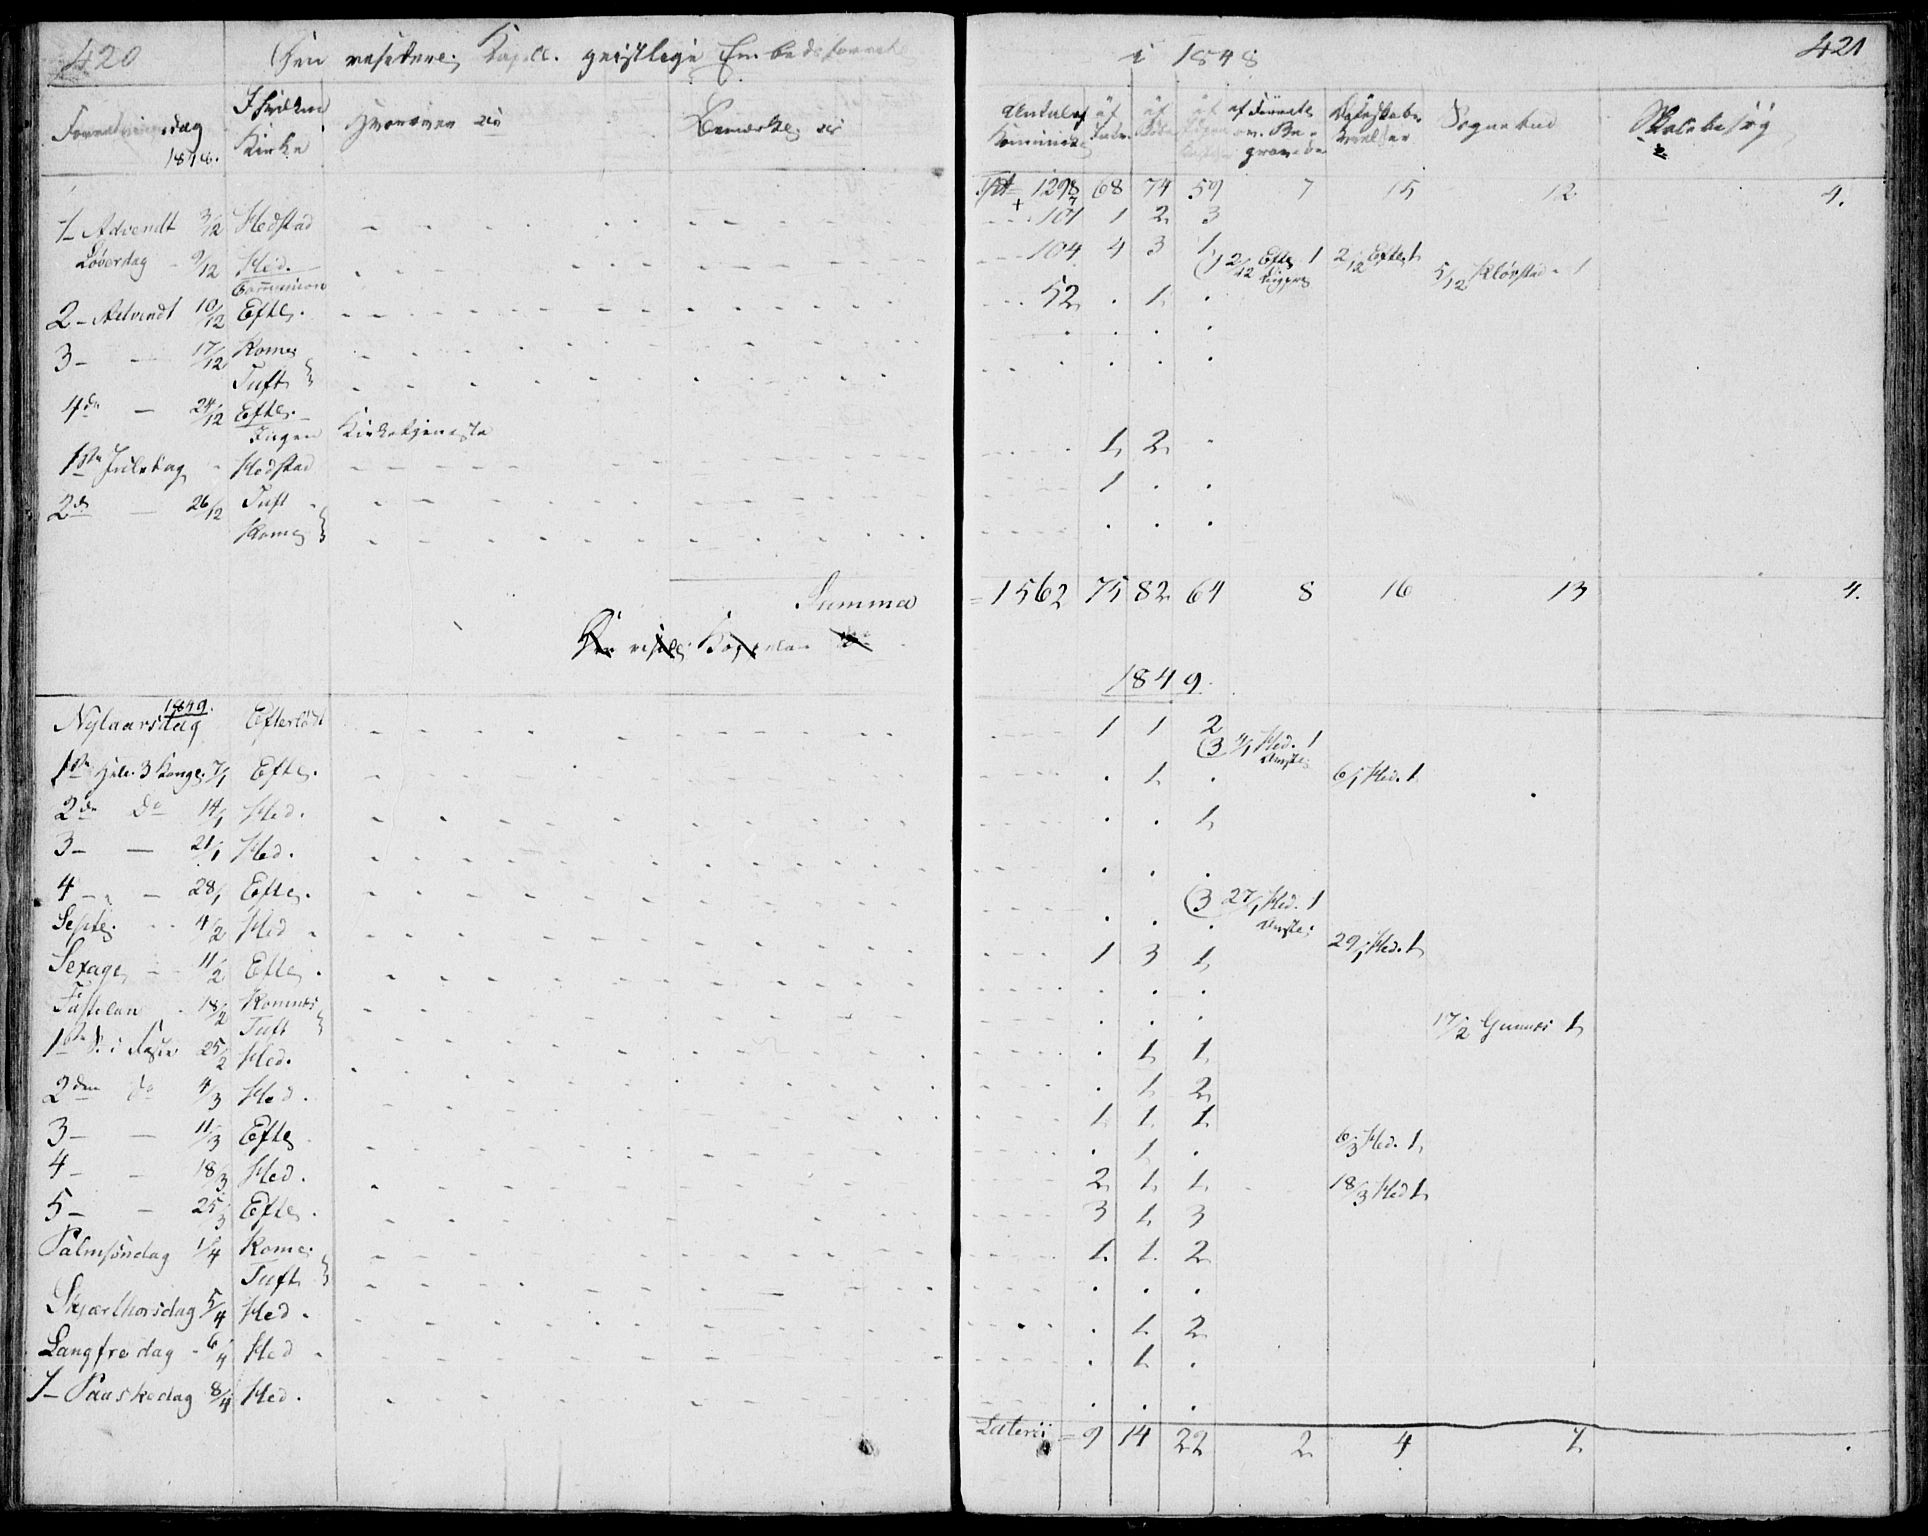 420
Den residere; Kapell. geistlige Embedsforret
i 1848
421
Forretningsdag 1848. I hvilken Kirke Hvorover &c Bemærkn; &c
Antal af Communic; af af af af forrette ov. Be- gravede Sognebud Skolebesög
Tpt 1298 68 74 59 7 15 12 4.
1 - Advendt 3/12 Hedstad 101 1 2 3
Löverdag - 9/12 Hed. Communion 104 4 3 1, 2/12 Efte; 1 2/12 Efte; 1 5/12 Klövstad - 1
2 - Advendt 10/12 Efte; 52 . 1 .
3 - - 17/12 Rome; . . .
Tuft . . .
4de - 24/12 Efte; -
Ingen Kirketjeneste
1ste Juledag - Hedstad 1, 2, .
2d - 26/12 Tuft 1 . .
Rome; . . .
Summa = 1562 75 82 64 8 16 13 4.
1849.
1849.
Nytaarsdag Efterlödt 1 1 2 (3 4/1 Hed. 1
1ste Hell. 3 Konge. 7/1 Efte; . 1, . 6/1 Hed. 1
2de do 14/1 Hed. . . 1,
3 - - 21/1 Hed. . . .
4 - - 28/1 Efte; . . . (3 27/1 Hed. 1
Septe; 4/2 Hed 1 3 1, 29/1 Hed. 1,
Sexage; - 11/2 Efte; . . .
Fastelavn 18/2 Romnes . . . 17/2 Gunnæs 1,
Tuft
1ste S. i Faste 25/2 Hed. . 1, 1,
2den do 4/3 Hed. . 1, 2,
3 - - 11/3 Efte; 1, 1, 1. 6/3 Hed. 1,
4 - - 18/3 Hed. . 1, .
5 - - 25/3 Efte; 2, 1, 1, 18/3 Hed 1,
Palmsöndag 1/4 Rome; 3 1, 3
Tuft 1. 1. 2,
Skjærthorsdag 5/4 Hed . . .
Langfredag - 6/4 Hed . 1, 2,
1 - Paaskedag 8/4 Hed. . 1, .
Lateris = 9 14 22 2, 4 1, .